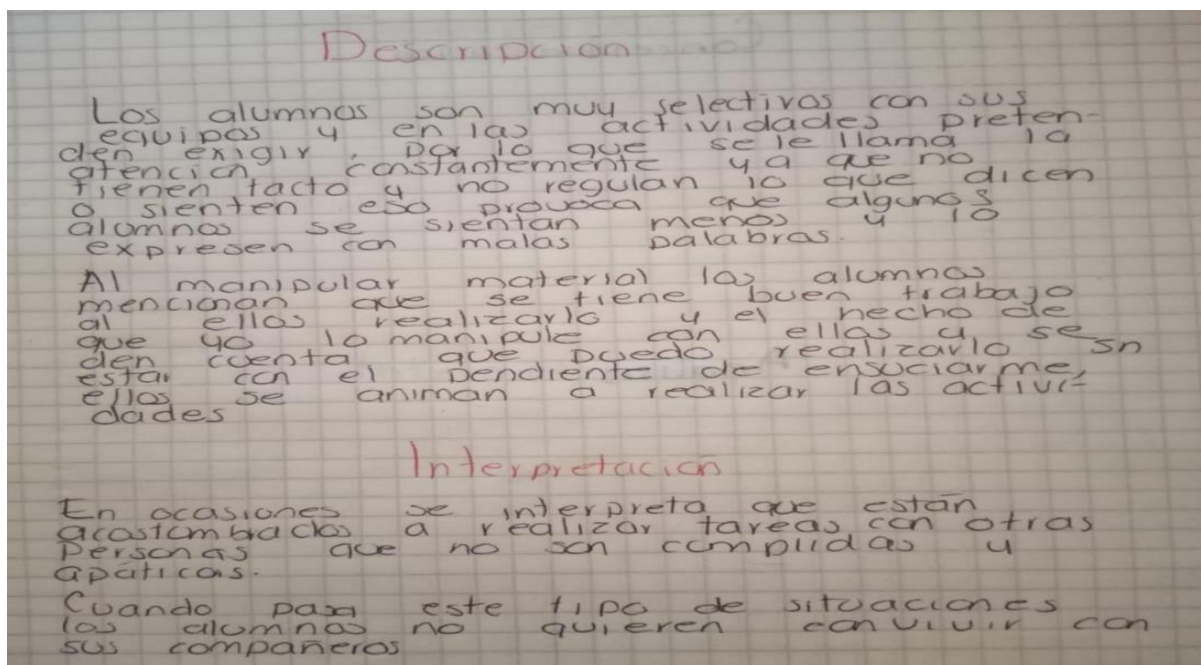 Descripción
Los alumnos son muy selectivos con sus
equipos y en las actividades preten-
den exigir, por lo que se le llama la
atención constantemente ya que no
tienen tacto y no regulan lo que dicen
o sienten eso provoca que algunos
alumnos se sientan menos y lo
expresen con malas palabras.
Al manipular material los alumnos
mencionan que se tiene buen trabajo
al ellos realizarlo y el hecho de
que yo lo manipule con ellos y se
den cuenta que puedo realizarlo sn
estar con el pendiente de ensuciarme,
ellos se animan a realizar las activi-
dades
Interpretación
En ocasiones se interpreta que están
acostumbrados a realizar tareas con otras
personas que no son cumplidas y
apáticas.
Cuando pasa este tipo de situaciones
los alumnos no quieren convivir con
sus compañeros